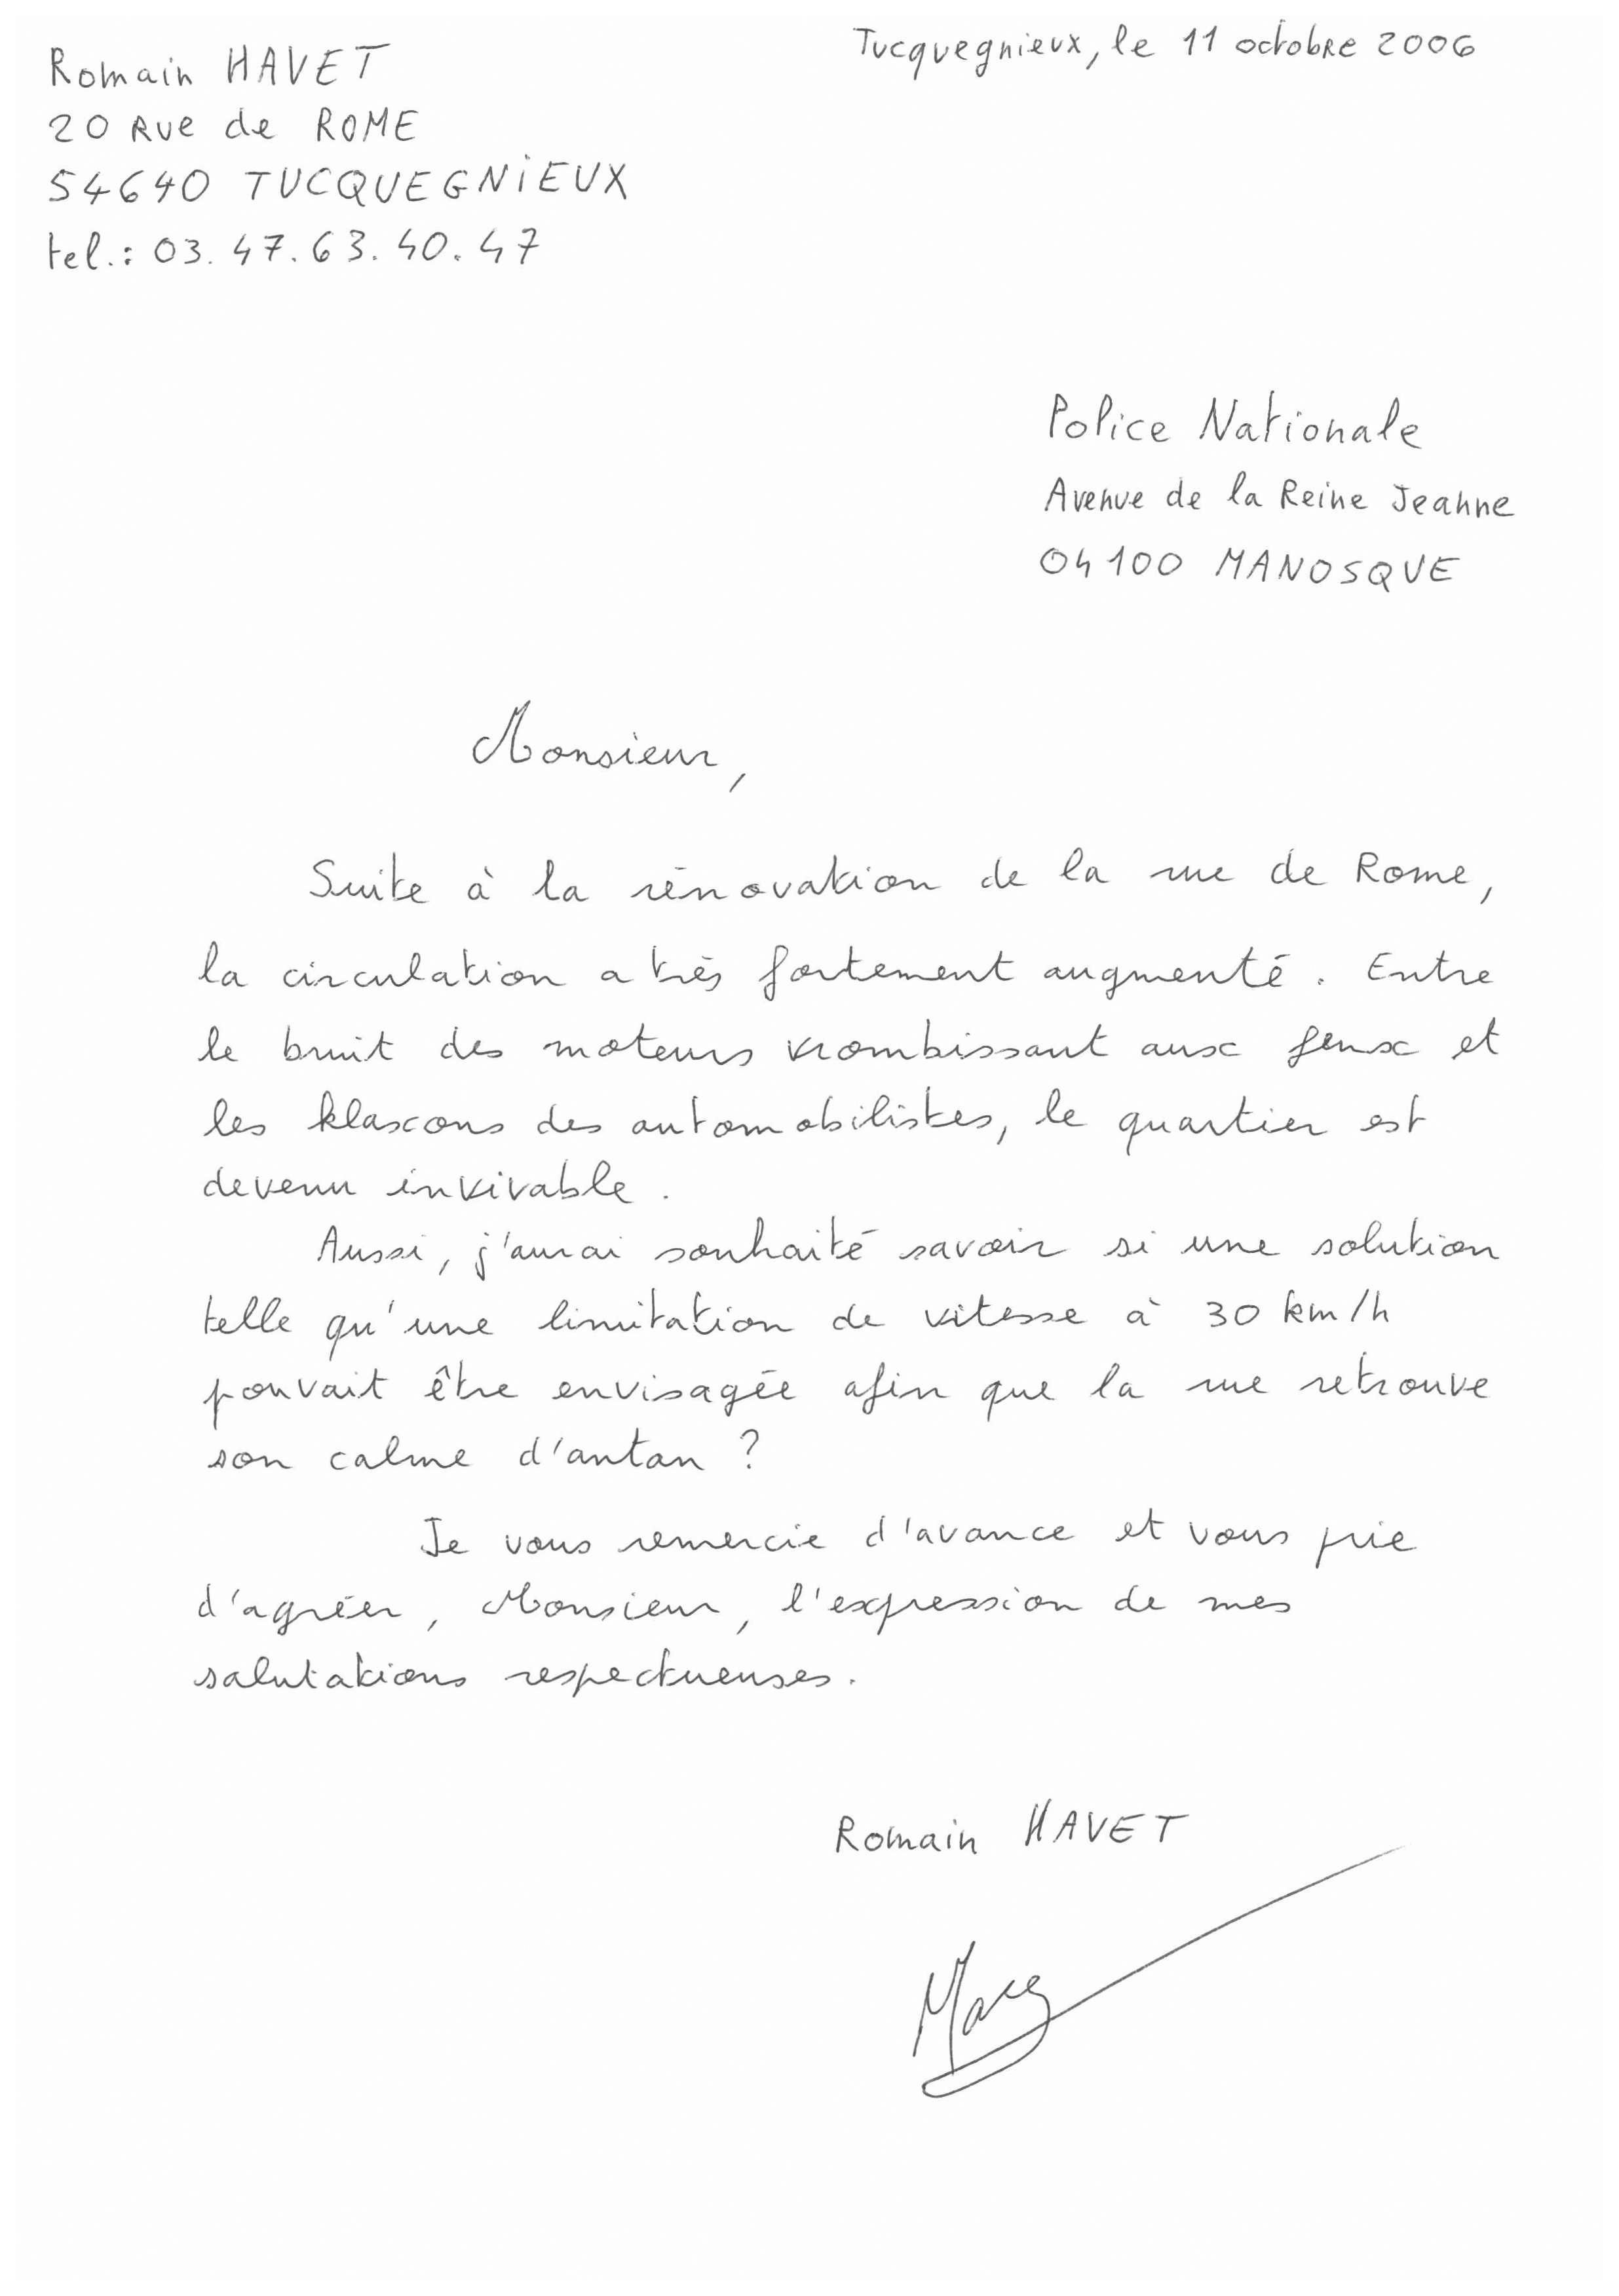 Romain HAVET
20 Rue de ROME
54640 TUCQUEGNiEUX
tel.: 03.47.63.40.47
Tucquegnieux, le 11 octobre 2006
Police Nationale
Avenue de la Reine Jeanne
04100 MANOSQUE
Monsieur,
Suite à la rénovation de la rue de Rome,
la circulation a très fortement augmenté. Entre
le bruit des moteurs vrombissant aux feux et
les klaxons des automobilistes, le quartier est
devenu invivable.
Aussi, j'aurai souhaité savoir si une solution
telle qu'une limitation de vitesse à 30 km/h
pouvait être envisagée afin que la rue retrouve
son calme d'antan ?
Je vous remercie d'avance et vous prie
d'agréer, Monsieur, l'expression de mes
salutations respectueuses.
Romain HAVET